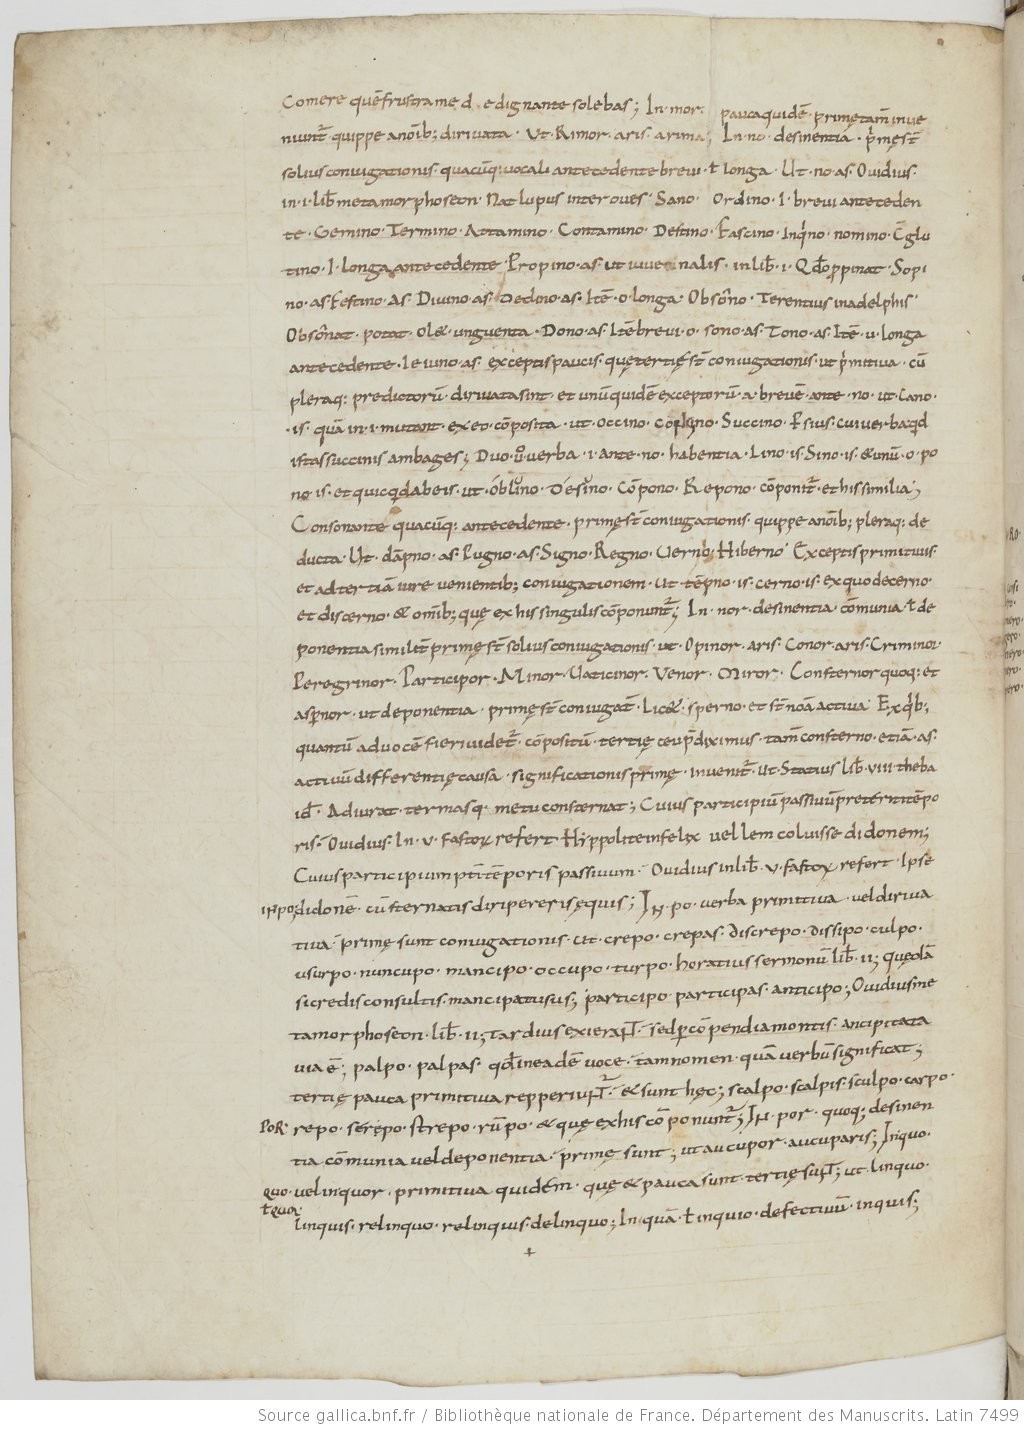 Comere quē frustra me d edignante solebas; In · mor · pauca quidē · primę tam̄ inue
niunt̄ · quippe a nōib; diriuata · Ut · Rimor · aris · arima; In · no · desinentia · p̄mę sт̄
solius coniugationis · quacūq: uocali antecedente breui · ł longa · Ut · no · as · Ouidius ·
in · i · lib̄ metamorphoseon · Nat lupus inter oues · Sano · Ordino · I · breui anteceden
te · Gemino · Termino · Actamino · Contamino · Destino · Fascino · Inq̍no · nomino · C̄glu
tino · I · longa antecedente · Propino · as · ut iuuenalis · in lib̄ · i · Qd̄ p̄pinat · Sopi
no · as · Festino · As · Diuino · as · Declino · as · Itē · o · longa · Obsōno · Terentius in adelphis ·
Obsōnat · potat · ol& · unguenta · Dono · as · Itē breui · o · sono · as · Tono · as · Itē · u · longa
antecedente · Ieiuno · as · exceptis paucis · quę tertię sт̄ coniugationis · ut p̍mitiua · cū
pleraq: predictorū · diriuata sint · et unū quidē exceptorū · a · breuē · ante · no · ut Cano ·
· is · quā in · i · mutant · ex eo · cōposita · ut · occino · Concino · Succino · Psius · cui uerba: qd
istas succinis ambages; Duo u̅ uerba · i · ante · no · habentia · Lino · is · Sino · is · & unū · o · po
no · is · et quicq̍d ab eis · ut · oblino · Desino · Cōpono · Repono · cōponit̄ · et his similia;
Consonante quacūq: antecedente · primę sт̄ coniugationis · quippe a nōib; pleraq: de
ducta · Ut · dāpno · as · Pugno · as · Signo · Regno · Uerno · Hiberno · Exceptis primitiuis ·
et ad tertiā iure uenientib; coniugationem · Ut tēpno · is · cerno · is · ex quo decerno ·
et discerno · & om̄ib; quę ex his singulis cōponunt̄; In · nor · desinentia cōmunia ł de
ponentia similit̄ primę sт̄ solius coniugationis · ut · Opinor · aris · Conor · aris · Criminor ·
Peregrinor · Participor · Minor · Uaticinor · Uenor · Miror · Consternor quoq: et
asp̄nor · ut deponentia · primę sт̄ coniugat̄ · Lic& · sperno · et st̄no a activa · Ex q̍b;
quantū ad uocē fieri uidet̄ · cōpositū · tertię ceu p̄diximus · tam̄ consterno · etiā · as ·
activū differentię causa · significationis primę · inuenit̄ · Ut Statius lib̄ · viii · theba
id̄ · Adiurat · termasq · metu consternat; Cuius participiū passiuū preteriti tēpo
ris · Ouidius · In · v · fastoꝝ refert Hyppolite infelix uellem coluisse didonem;
Cuius participium pт̄i tēporis passiuum · Ouidius in lib̄ · v · fastoꝝ refert · Ipse
IN PO; didonē · cū sternatis diriperer is ęquis; IN · po · uerba primitiua · uel diriua
tiua · primę sunt coniugationis · ut · crepo · crepas · discrepo · dissipo · culpo ·
usurpo · nuncupo · mancipo · occupo · turpo · horatius sermonū lib̄ · ii; quędā
si credis consultis · mancipat usus; participo · participas · anticipo; Ouidius me
tamorphoseon · lib̄ · ii; tardius exierant̄ · sed p̄ cōpendia montis · ancipitata
uia ē; palpo · palpas · qđ in eadē uoce · tam nomen · quā uerbū significat;
tertię pauca primitiua repperiunт̄ · & sunt hęc; scalpo · scalpis · sculpo · carpo ·
POR · repo · serepo · strepo · rūpo · & quę ex his cōponunt̄; IN · por · quoq; desinen
tia cōmunia uel deponentia · primę sunt; ut aucupor · aucuparis; In quo ·
QUO · uel in quor · primitiua quidem · quę & pauca sunt · tertię sunт̄; ut linquo ·
ł QUOR · linquis · relinquo · relinquis · delinquo; In quā · ł inquio · defectiuū · inquis;